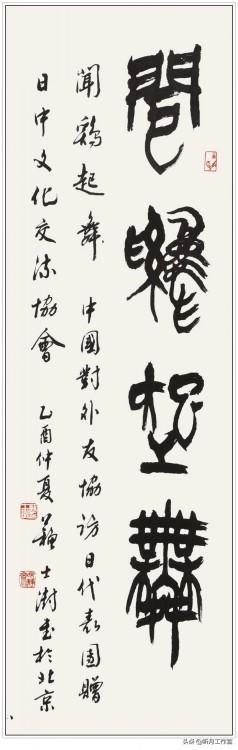 聞鷄起舞
聞鷄起舞 中國對外友協訪日代表團贈
日中文化交流協會 乙酉仲夏 蘇士澍書於北京
头条@昕月工作室